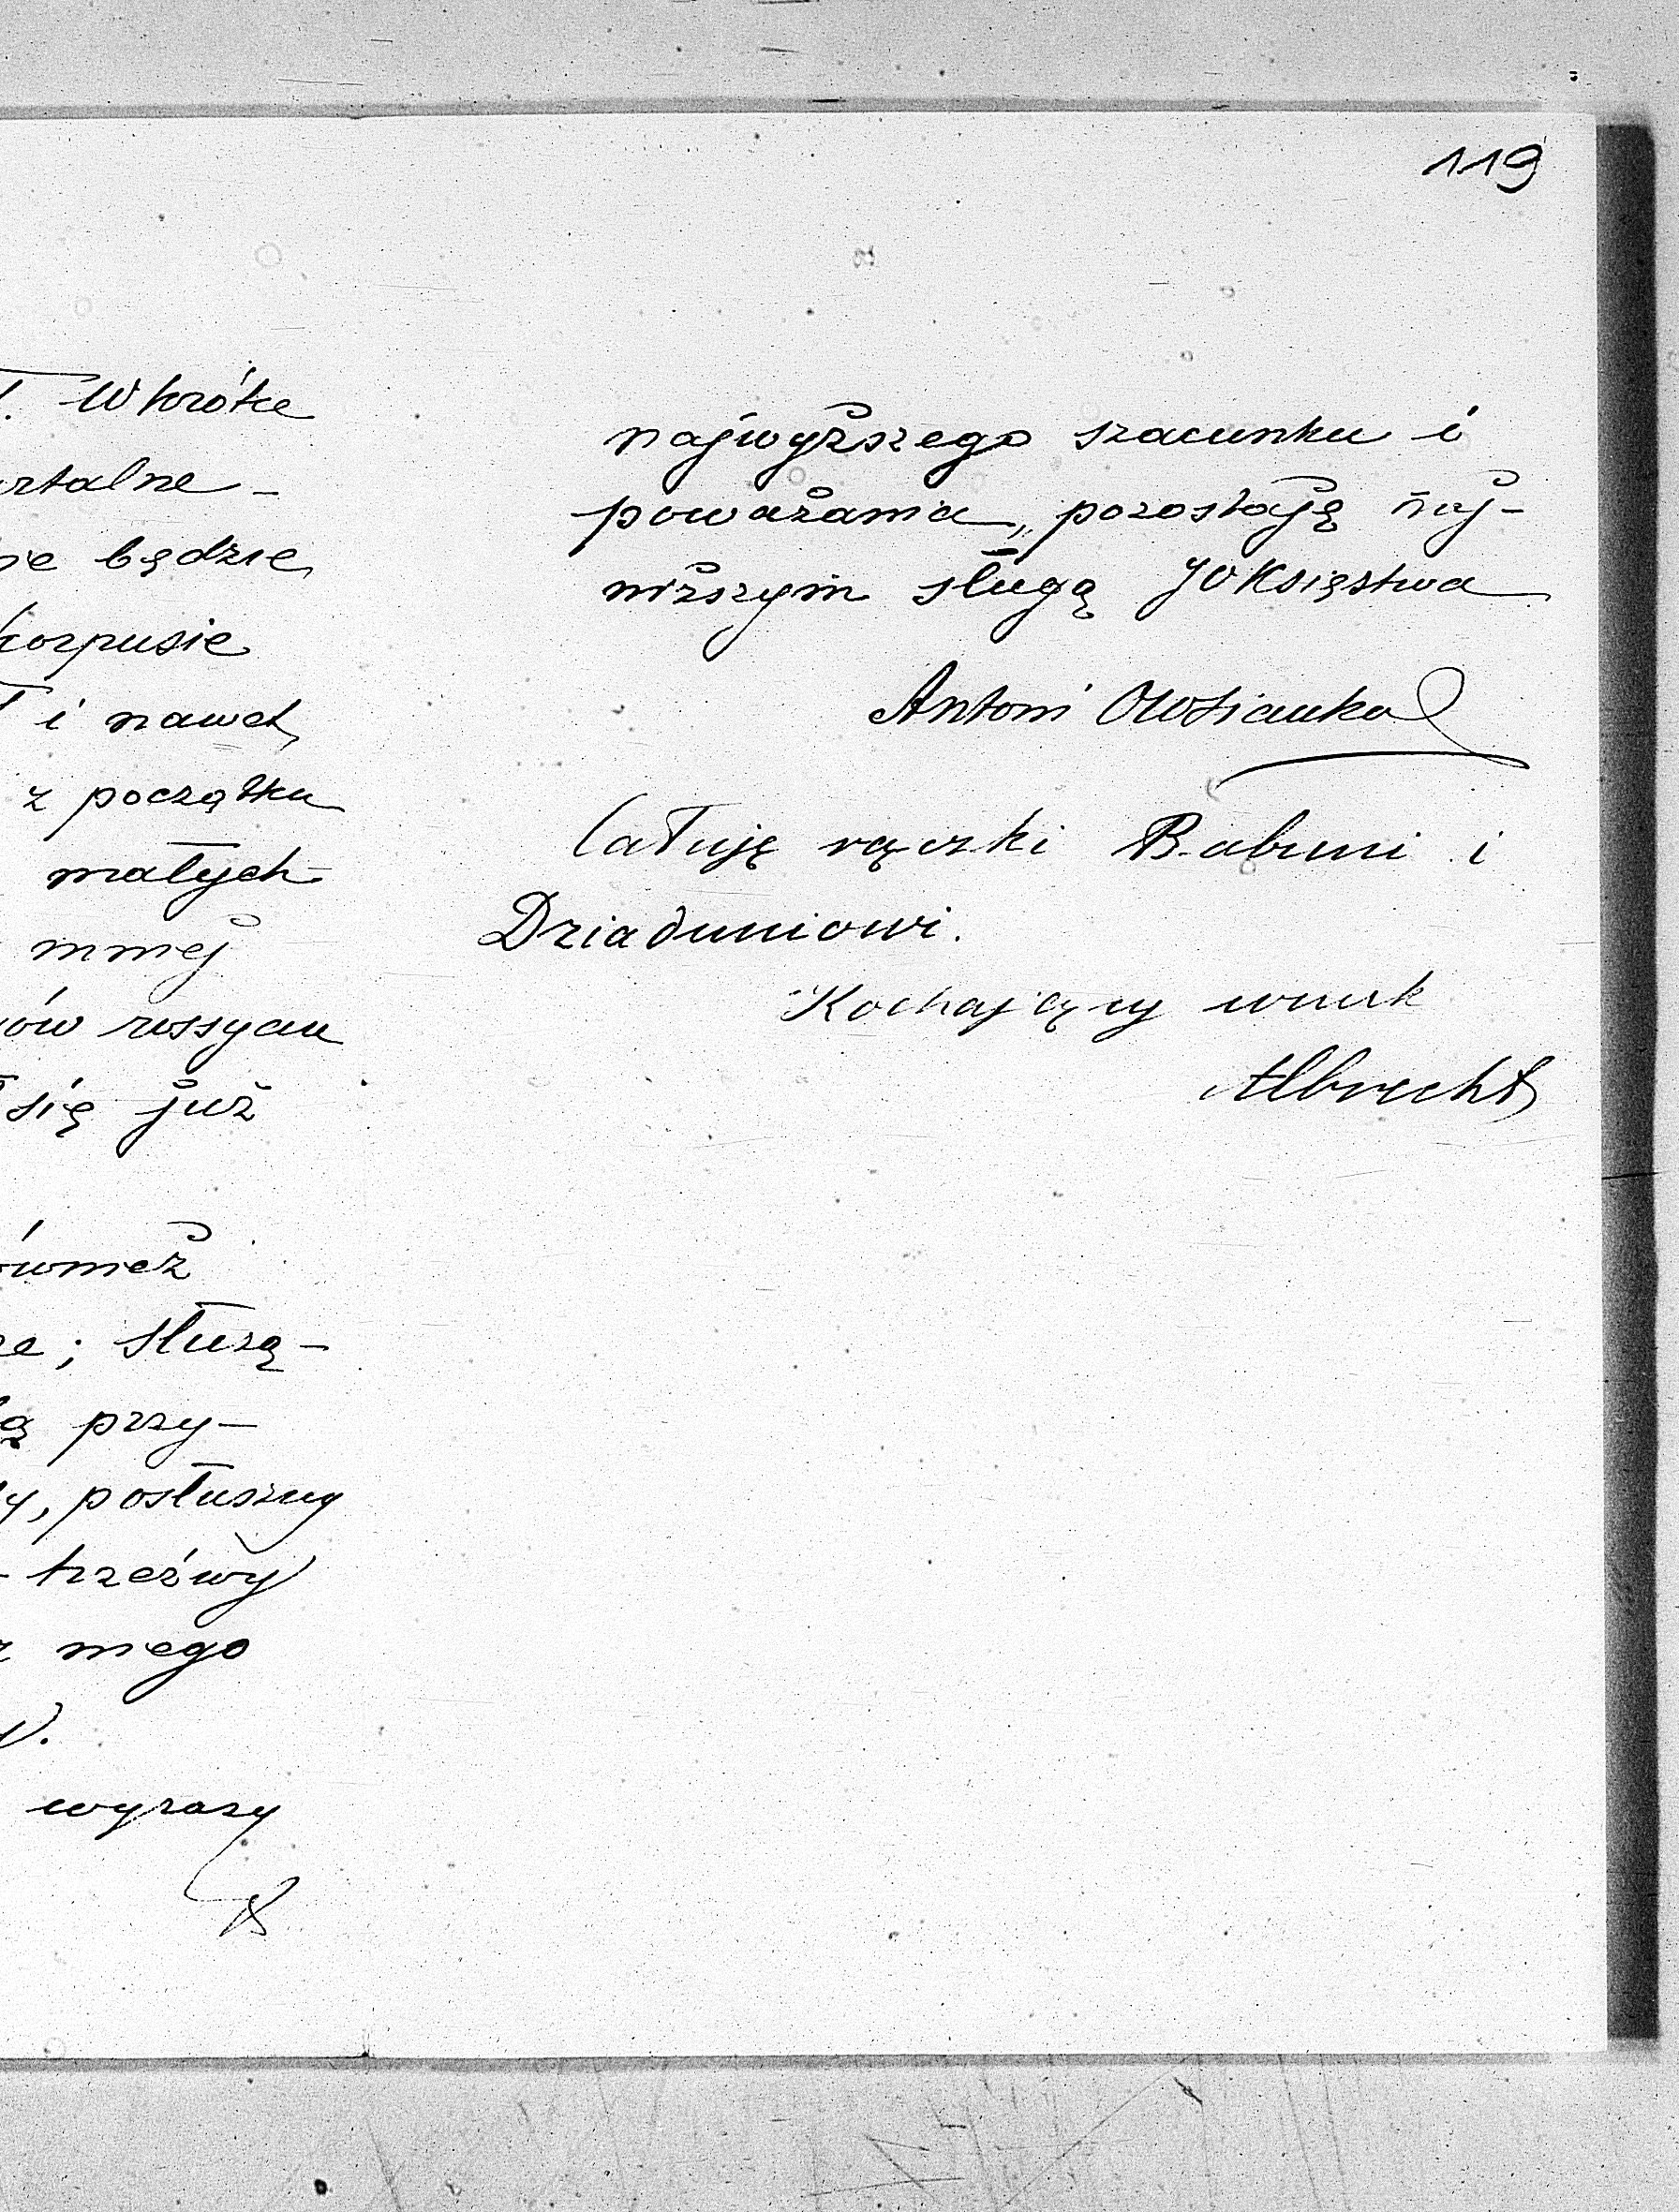 119
. Wkrótce
rtalne -
ie będzie
korpusie
ł i nawet,
z początku
małych
mniej
ów rossyan
się już
ównież
ze; służą-
ą przy-
y, posłuszny
- trzeźwy
z niego
.
wyrazy
najwyższego szacunku i
poważania, pozostaję naj-
niższym sługą JO Księstwa
Antoni Owsianko
Całuję rączki Babuni i
Dziaduniowi.
Kochający wnuk
Albrecht